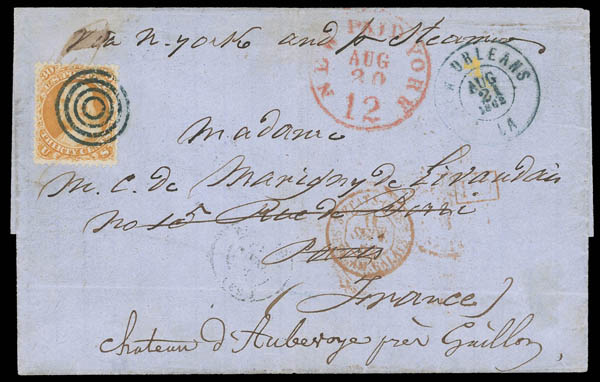 via n. york and pr Steamer
NEW YORK
PAID
AUG
30
12
N. ORLEANS
LA
AUG
21
1862
30
THIRTY CENTS
Madame
M. C. de Marigny de Livaudais
no 15 Rue de Berri
Paris
(France)
chateau d'Auberoye près Guillon